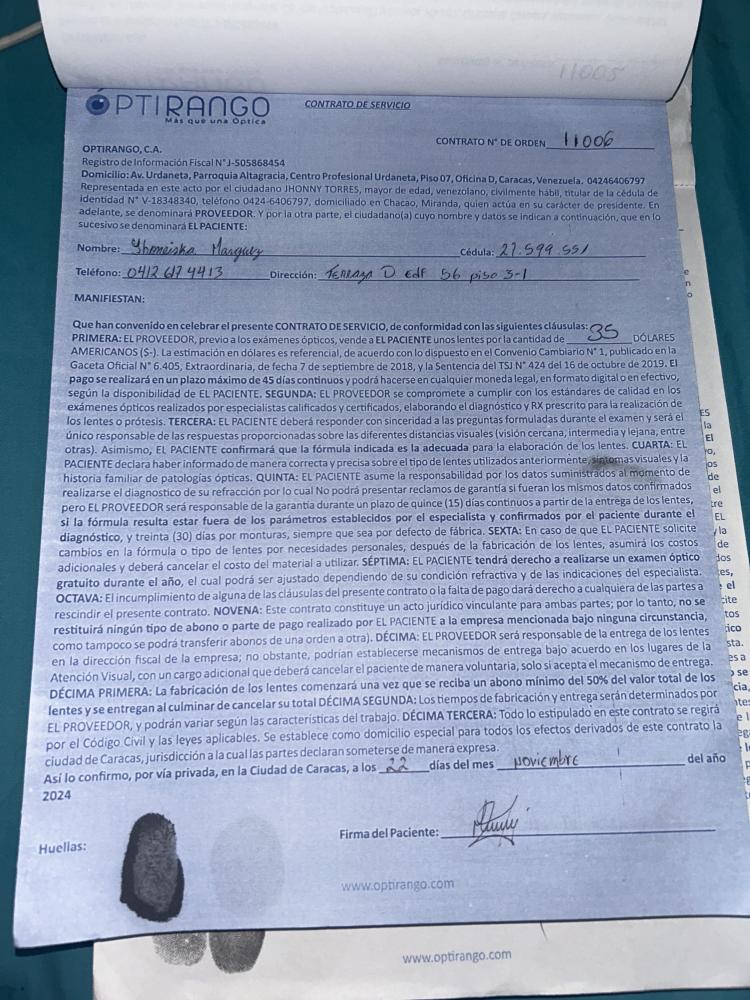 11005
OPTIRANGO
Más que una Óptica
CONTRATO DE SERVICIO
CONTRATO N° DE ORDEN 11006
OPTIRANGO, C.A.
Registro de Información Fiscal N° J-505868454
Domicilio: Av. Urdaneta, Parroquia Altagracia, Centro Profesional Urdaneta, Piso 07, Oficina D, Caracas, Venezuela. 04246406797
Representada en este acto por el ciudadano JHONNY TORRES, mayor de edad, venezolano, civilmente hábil, titular de la cédula de
identidad N° V-18348340, teléfono 0424-6406797, domiciliado en Chacao, Miranda, quien actúa en su carácter de presidente. En
adelante, se denominará PROVEEDOR. Y por la otra parte, el ciudadano(a) cuyo nombre y datos se indican a continuación, que en lo
sucesivo se denominará EL PACIENTE:
Nombre: Yhoneiska Marquez Cédula: 27.599.551
Teléfono: 0412 617 4413 Dirección: Terraza D edf 56 piso 3-1
MANIFIESTAN:
Que han convenido en celebrar el presente CONTRATO DE SERVICIO, de conformidad con las siguientes cláusulas: 35
PRIMERA: EL PROVEEDOR, previo a los exámenes ópticos, vende a EL PACIENTE unos lentes por la cantidad de DÓLARES
AMERICANOS ($-). La estimación en dólares es referencial, de acuerdo con lo dispuesto en el Convenio Cambiario N° 1, publicado en la
Gaceta Oficial N° 6.405, Extraordinaria, de fecha 7 de septiembre de 2018, y la Sentencia del TSJ N° 424 del 16 de octubre de 2019. El
pago se realizará en un plazo máximo de 45 días continuos y podrá hacerse en cualquier moneda legal, en formato digital o en efectivo,
según la disponibilidad de EL PACIENTE. SEGUNDA: EL PROVEEDOR se compromete a cumplir con los estándares de calidad en los
exámenes ópticos realizados por especialistas calificados y certificados, elaborando el diagnóstico y RX prescrito para la realización de
los lentes o prótesis. TERCERA: EL PACIENTE deberá responder con sinceridad a las preguntas formuladas durante el examen y será el
único responsable de las respuestas proporcionadas sobre las diferentes distancias visuales (visión cercana, intermedia y lejana, entre
otras). Asimismo, EL PACIENTE confirmará que la fórmula indicada es la adecuada para la elaboración de los lentes. CUARTA: EL
PACIENTE declara haber informado de manera correcta y precisa sobre el tipo de lentes utilizados anteriormente, síntomas visuales y la
historia familiar de patologías ópticas. QUINTA: EL PACIENTE asume la responsabilidad por los datos suministrados al momento de
realizarse el diagnostico de su refracción por lo cual No podrá presentar reclamos de garantía si fueran los mismos datos confirmados
pero EL PROVEEDOR será responsable de la garantía durante un plazo de quince (15) días continuos a partir de la entrega de los lentes,
si la fórmula resulta estar fuera de los parámetros establecidos por el especialista y confirmados por el paciente durante el
diagnóstico, y treinta (30) días por monturas, siempre que sea por defecto de fábrica. SEXTA: En caso de que EL PACIENTE solicite
cambios en la fórmula o tipo de lentes por necesidades personales, después de la fabricación de los lentes, asumirá los costos
adicionales y deberá cancelar el costo del material a utilizar. SÉPTIMA: EL PACIENTE tendrá derecho a realizarse un examen óptico
gratuito durante el año, el cual podrá ser ajustado dependiendo de su condición refractiva y de las indicaciones del especialista.
OCTAVA: El incumplimiento de alguna de las cláusulas del presente contrato o la falta de pago dará derecho a cualquiera de las partes a
rescindir el presente contrato. NOVENA: Este contrato constituye un acto jurídico vinculante para ambas partes; por lo tanto, no se
restituirá ningún tipo de abono o parte de pago realizado por EL PACIENTE a la empresa mencionada bajo ninguna circunstancia,
como tampoco se podrá transferir abonos de una orden a otra). DÉCIMA: EL PROVEEDOR será responsable de la entrega de los lentes
en la dirección fiscal de la empresa; no obstante, podrían establecerse mecanismos de entrega bajo acuerdo en los lugares de la
Atención Visual, con un cargo adicional que deberá cancelar el paciente de manera voluntaria, solo si acepta el mecanismo de entrega.
DÉCIMA PRIMERA: La fabricación de los lentes comenzará una vez que se reciba un abono mínimo del 50% del valor total de los
lentes y se entregan al culminar de cancelar su total DÉCIMA SEGUNDA: Los tiempos de fabricación y entrega serán determinados por
EL PROVEEDOR, y podrán variar según las características del trabajo. DÉCIMA TERCERA: Todo lo estipulado en este contrato se regirá
por el Código Civil y las leyes aplicables. Se establece como domicilio especial para todos los efectos derivados de este contrato la
ciudad de Caracas, jurisdicción a la cual las partes declaran someterse de manera expresa.
Así lo confirmo, por vía privada, en la Ciudad de Caracas, a los 22 días del mes noviembre del año
2024
Huellas:
Firma del Paciente:
www.optirango.com
www.optirango.com